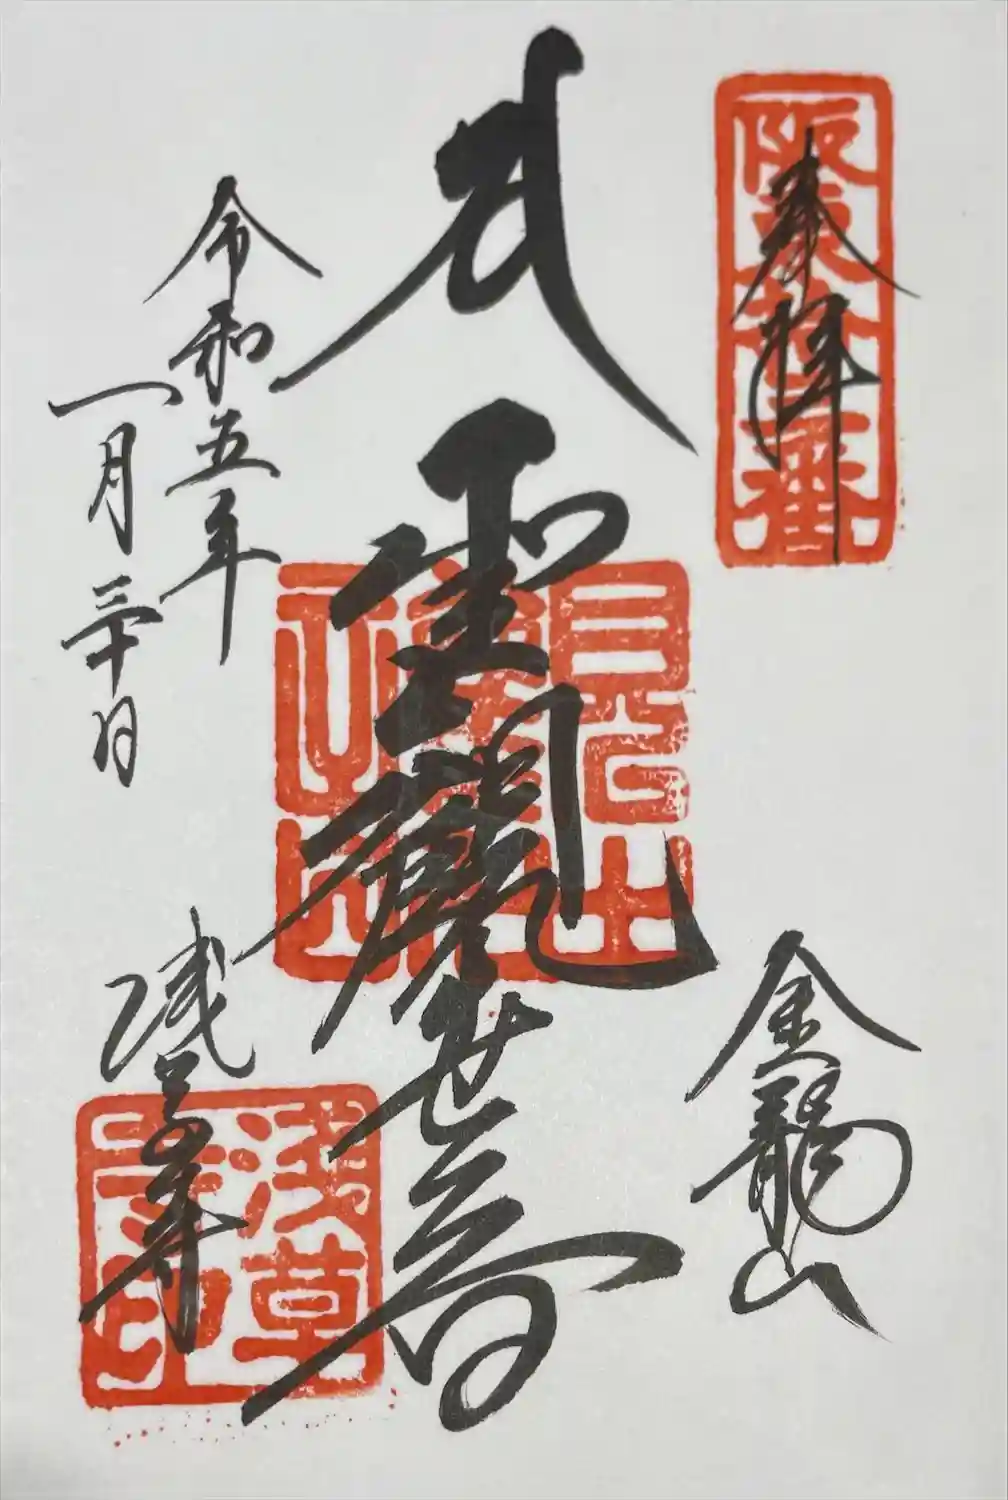 奉拝
阪東拾三番
金龍山
聖観世音
令和五年
一月三十日
浅草寺
浅草寺印